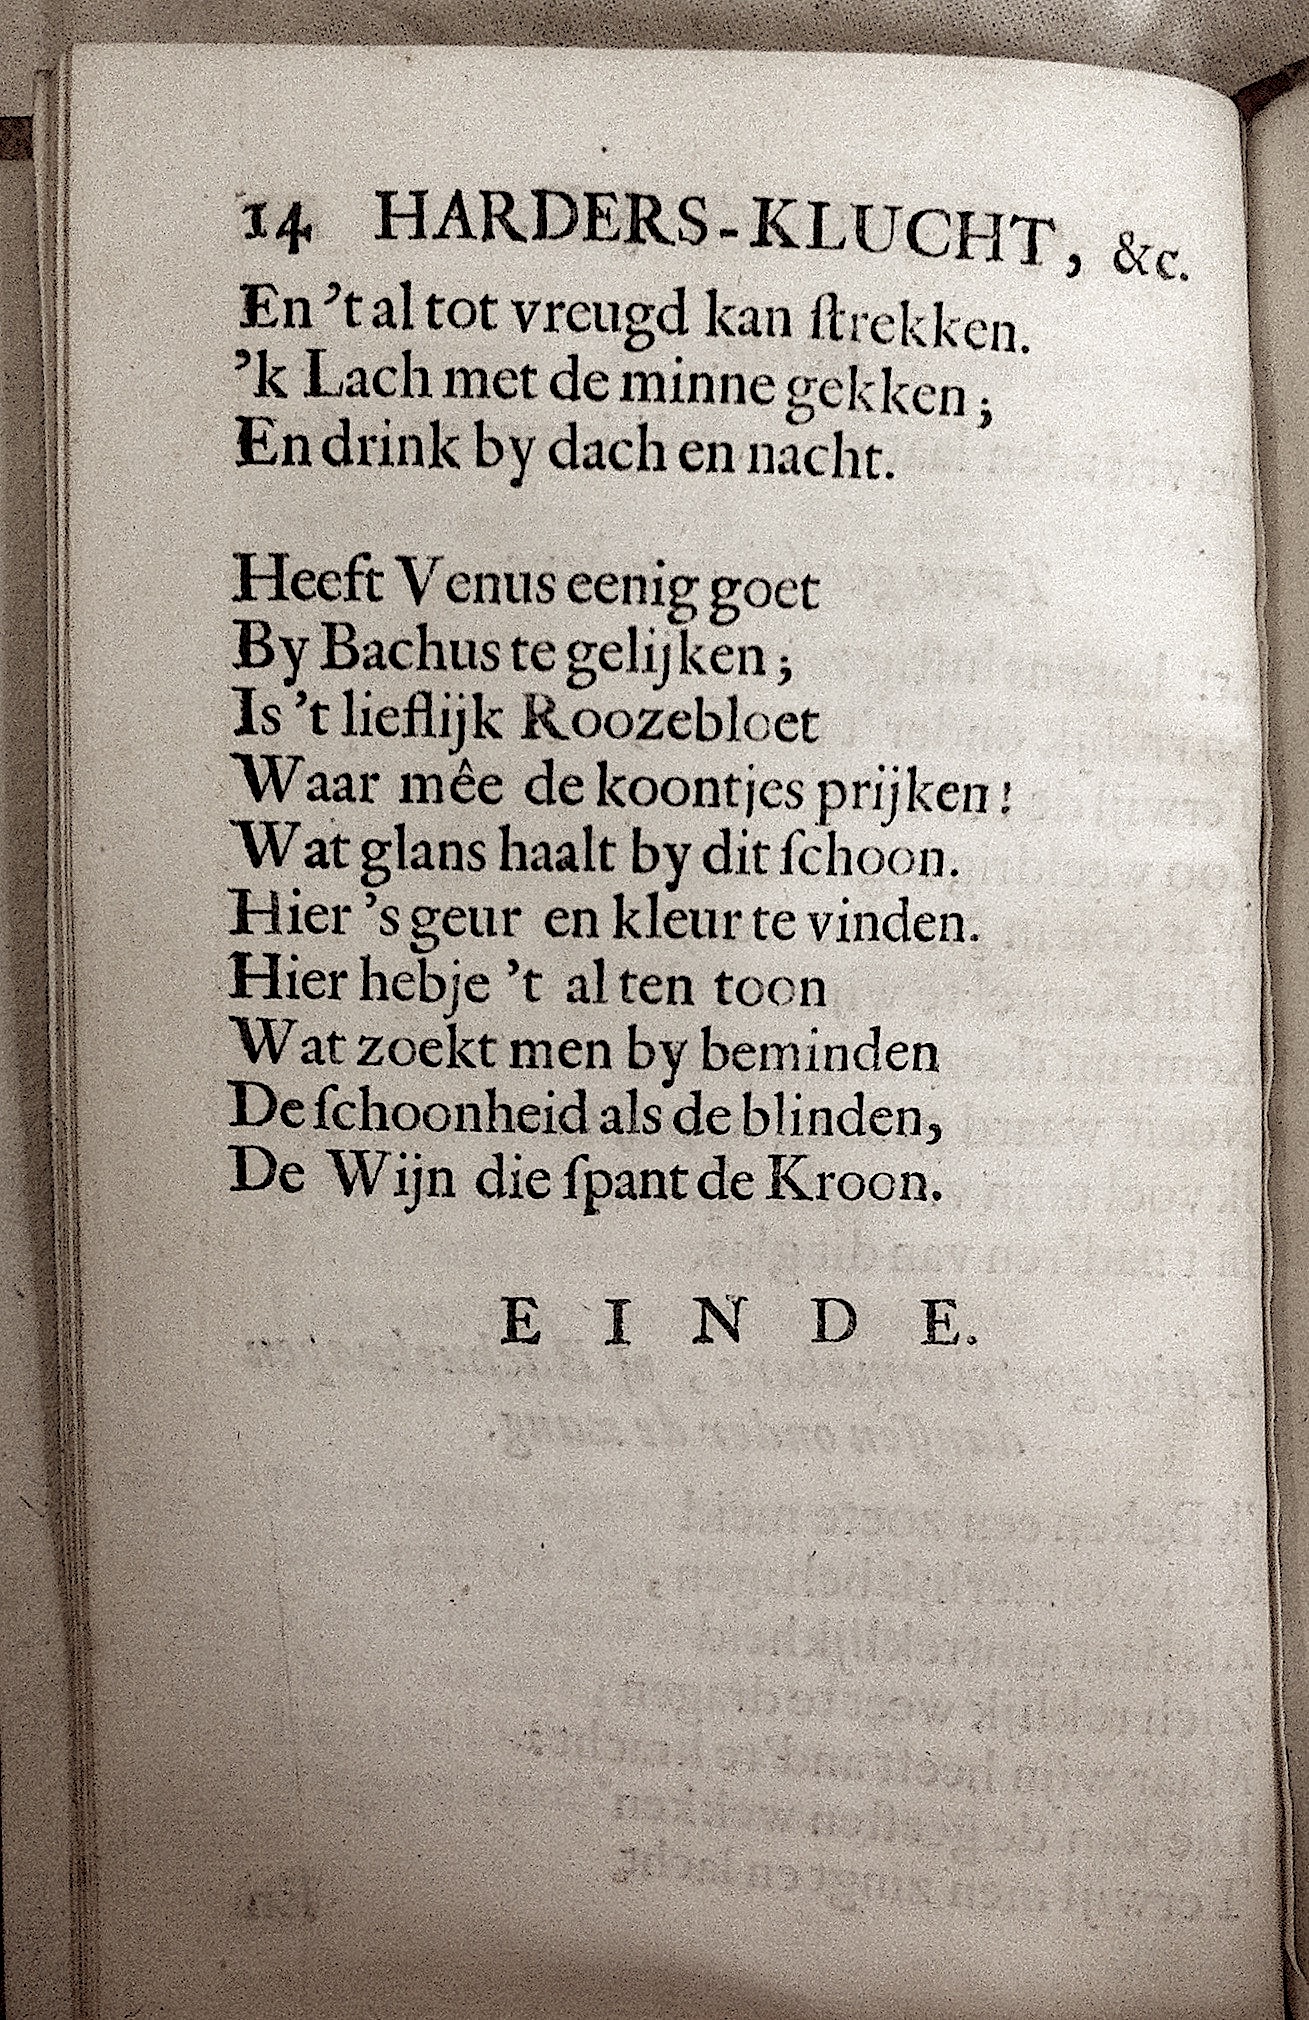 14 HARDERS-KLUCHT, &c.
En 't al tot vreugd kan ſtrekken.
'k Lach met de minne gekken;
En drink by dach en nacht.
Heeft Venus eenig goet
By Bachus te gelijken;
Is 't lieflijk Roozebloet
Waar mêe de koontjes prijken!
Wat glans haalt by dit ſchoon.
Hier 's geur en kleur te vinden.
Hier hebje 't al ten toon
Wat zoekt men by beminden
De ſchoonheid als de blinden,
De Wijn die ſpant de Kroon.
E I N D E.